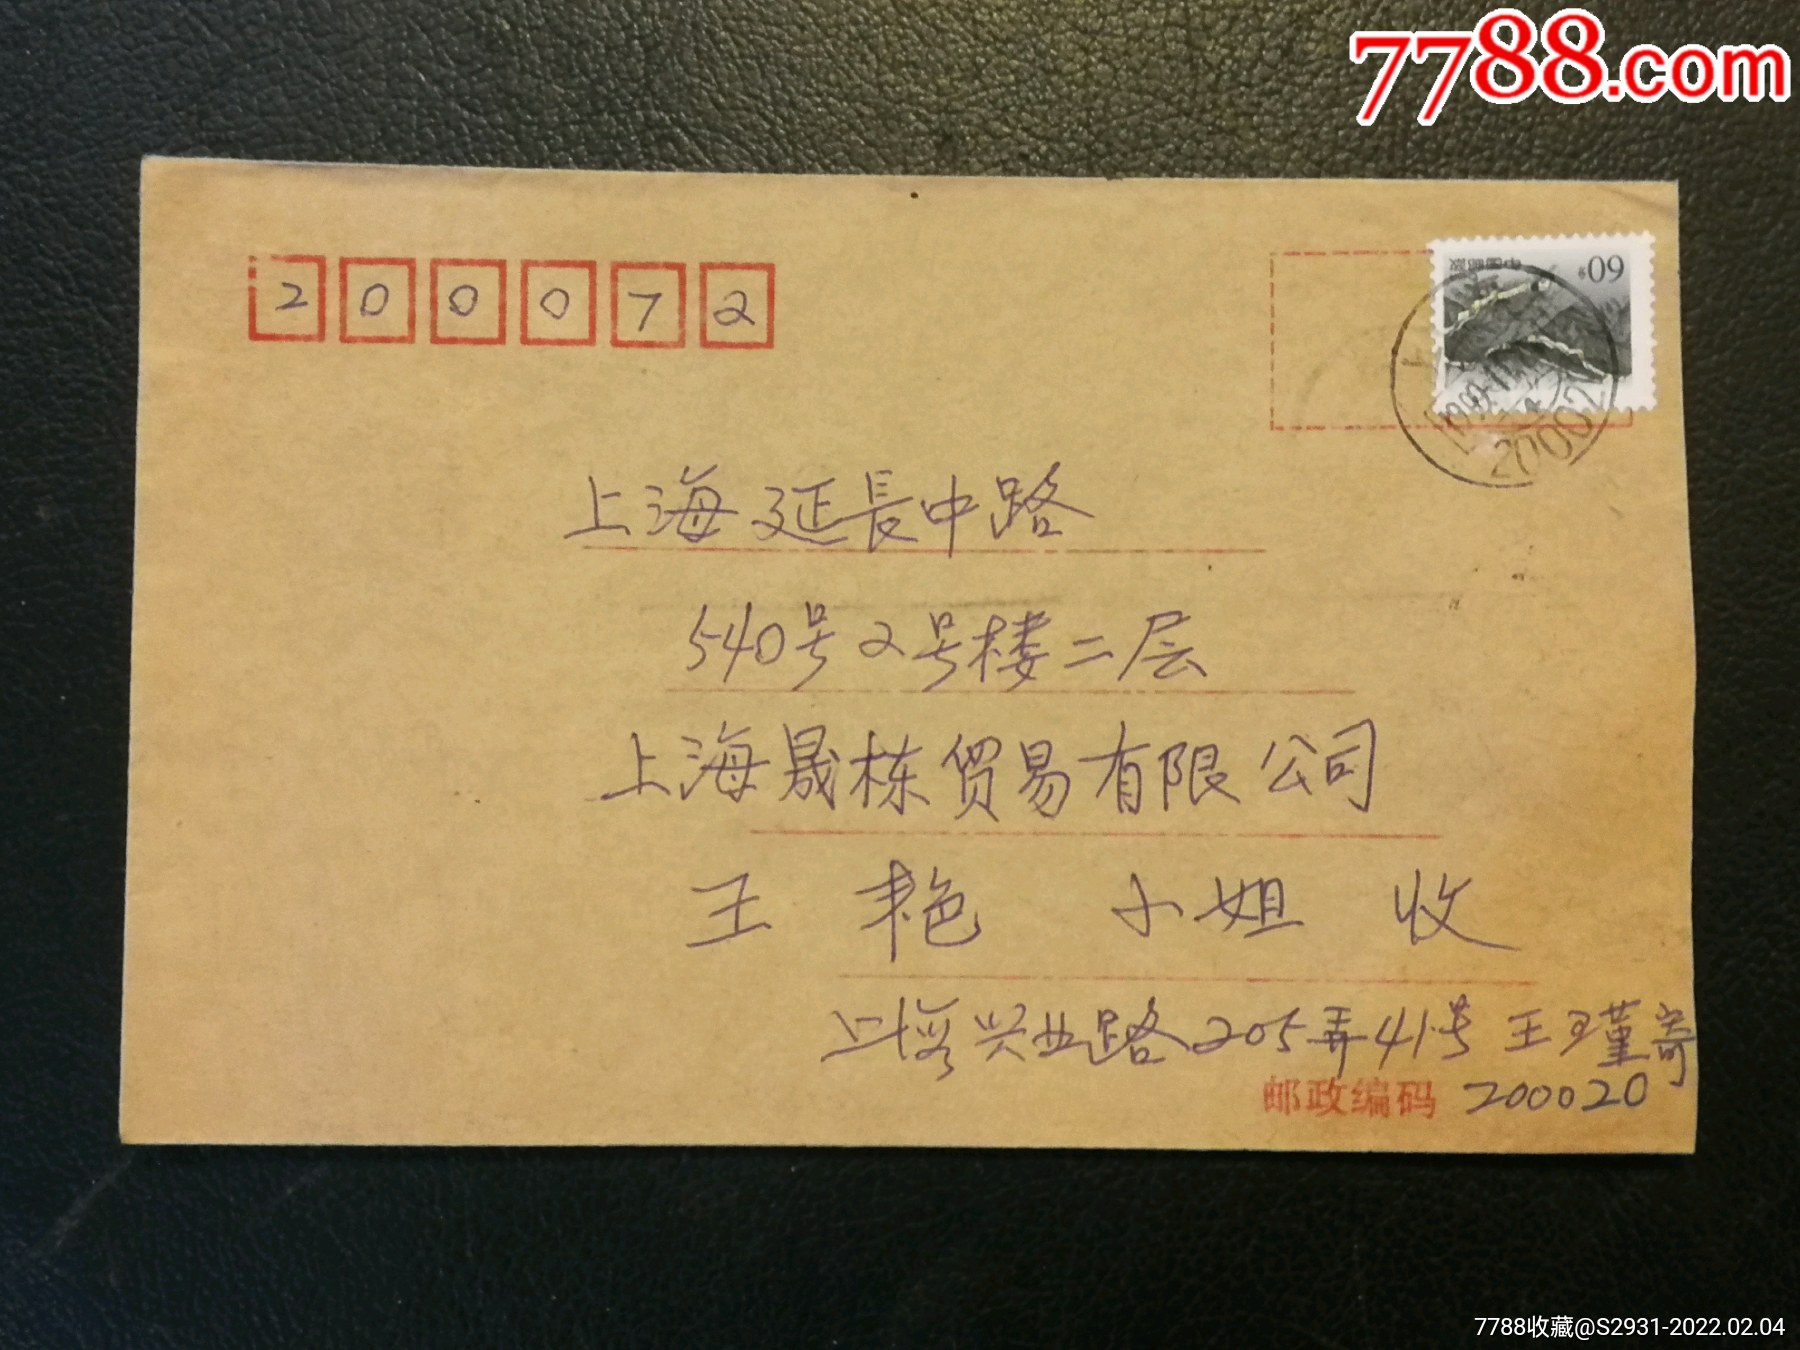 7788.com
200072
中国邮政
60分
1999.11
200020
上海延長中路
540号2号楼二层
上海晟栋贸易有限公司
王艳 小姐 收
上海兴业路205弄41号 王瑾寄
邮政编码 200020
7788收藏@S2931-2022.02.04